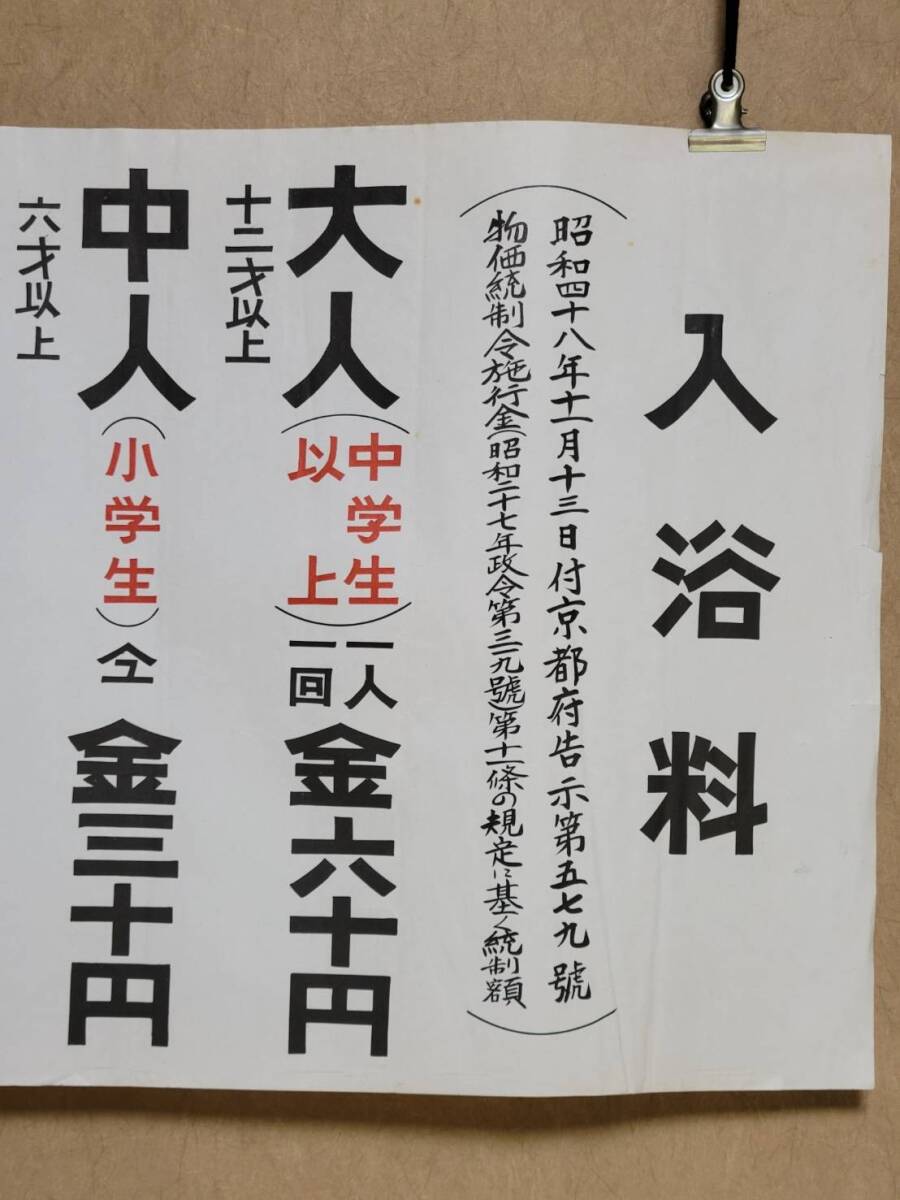 入浴料
(昭和四十八年十一月十三日付京都府告示第五七九號
物価統制令施行金(昭和二十七年政令第三一九號)第十一條の規定に基く統制額)
大人(中学生以上)一人一回金六十円
十二才以上
中人(小学生)仝金三十円
六才以上